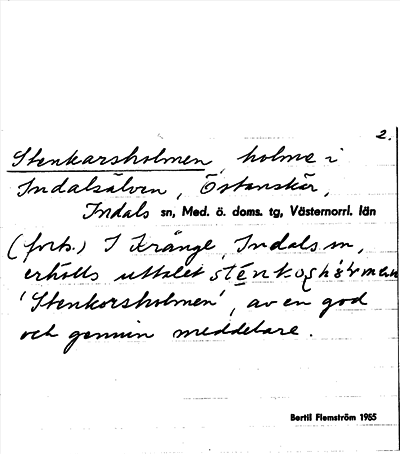 2.
Stenkarsholmen, holme i
Indalsälven, Östanskär,
Indals sn, Med. ö. doms. tg, Västernorrl. län
(forts.) I Kränge, Indals sn,
erhölls uttalet
'Stenkorsholmen', av en god
och genuin meddelare.
Bertil Flemström 1955